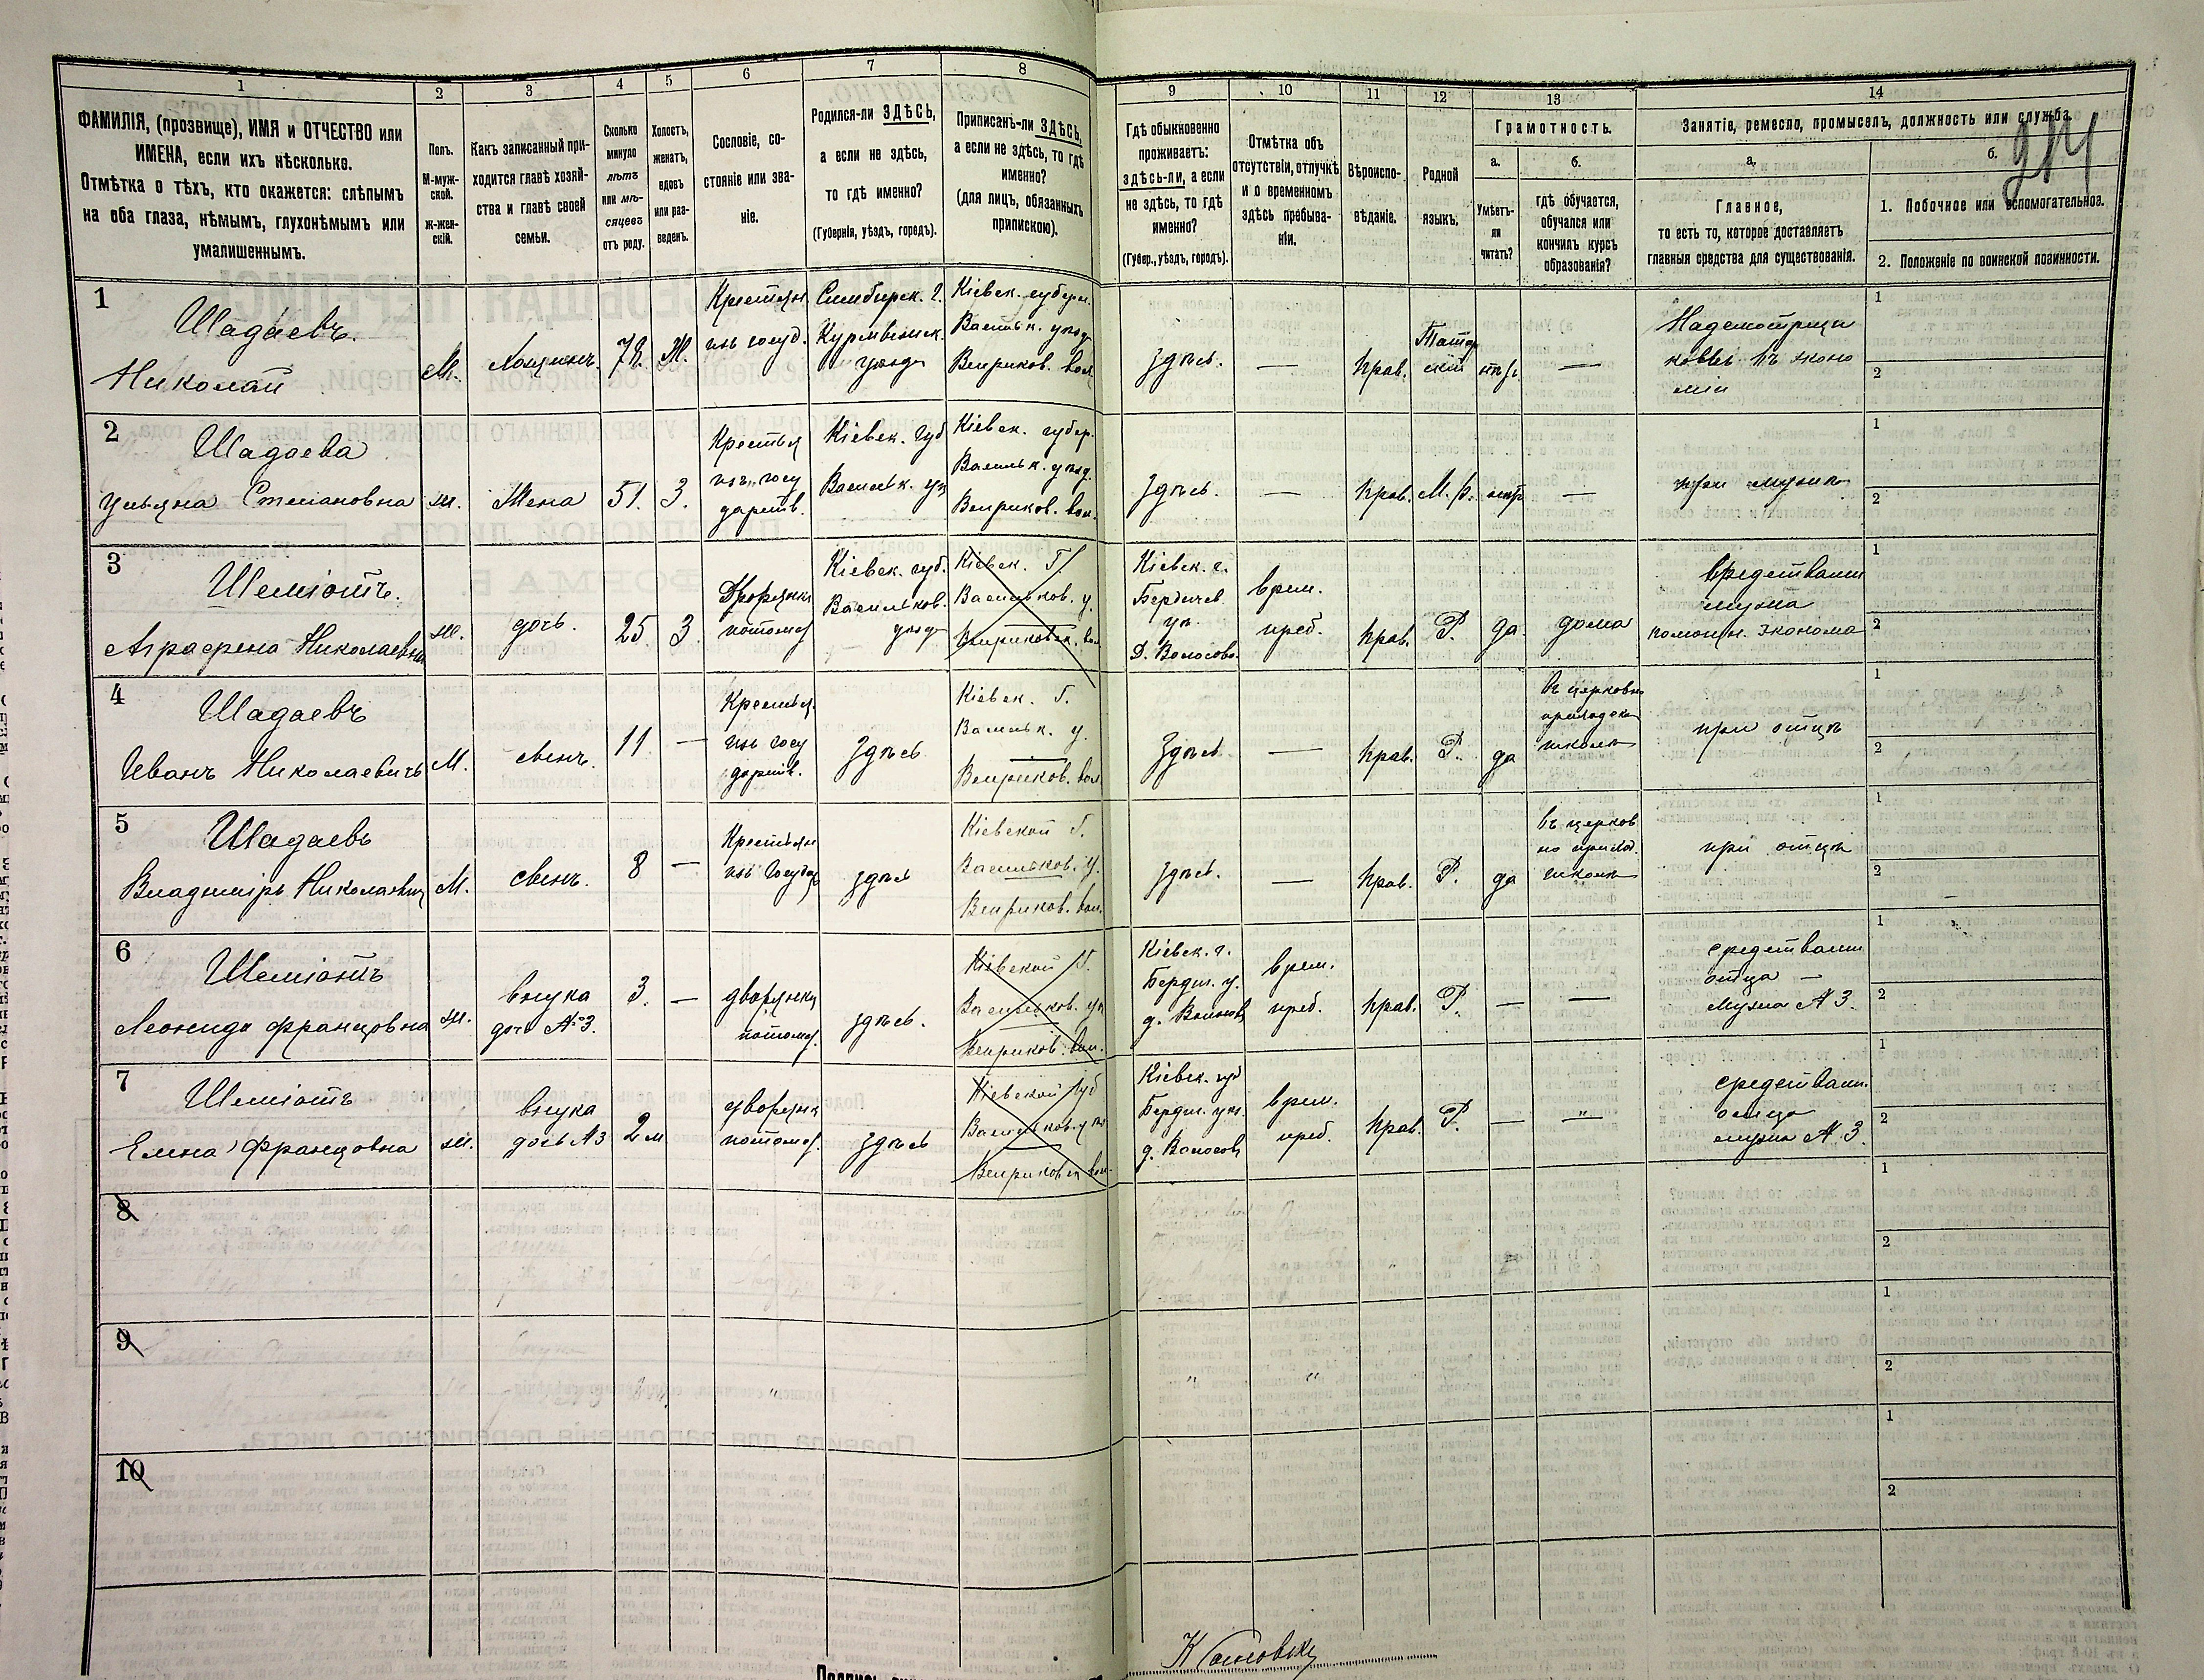 1 2 3 4 5 6 7 8 9 10 11 12 13 14
ФАМИЛІЯ, (прозвище), ИМЯ и ОТЧЕСТВО или
ИМЕНА, если ихъ нѣсколько.
Отмѣтка о тѣхъ, кто окажется: слѣпымъ
на оба глаза, нѣмымъ, глухонѣмымъ или
умалишеннымъ.
Полъ.
М-муж-
ской.
ж-жен-
скій.
Какъ записанный при-
ходится главѣ хозяй-
ства и главѣ своей
семьи.
Сколько
минуло
лѣтъ
или мѣ-
сяцевъ
отъ роду.
Холостъ,
женатъ,
вдовъ
или раз-
веденъ.
Сословіе, со-
стояніе или зва-
ніе.
Родился-ли ЗДѢСЬ,
а если не здѣсь,
то гдѣ именно?
(Губернія, уѣздъ, городъ).
Приписанъ-ли ЗДѢСЬ,
а если не здѣсь, то гдѣ
именно?
(для лицъ, обязанныхъ
припискою).
Гдѣ обыкновенно
проживаетъ:
здѣсь-ли, а если
не здѣсь, то гдѣ
именно?
(Губер., уѣздъ, городъ).
Отмѣтка объ
отсутствіи, отлучкѣ
и о временномъ
здѣсь пребыва-
ніи.
Вѣроиспо-
вѣданіе.
Родной
языкъ.
Грамотность.
а.
Умѣетъ-
ли
читать?
б.
гдѣ обучается,
обучался или
кончилъ курсъ
образованія?
Занятіе, ремесло, промыселъ, должность или служба.
а.
Главное,
то есть то, которое доставляетъ
главныя средства для существованія.
б.
1. Побочное или вспомогательное.
2. Положеніе по воинской повинности.
1
Шадаевъ.
Николай
М.
Хозяинъ.
Ж.
Крестьян.
изъ госуд.
Симбирск. г.
Курмышск.
уѣзд
Кіевск. губерн.
Васильк. уѣзд
Веприков. вол.
Здѣсь.
—
Прав.
Татар
скій
—
Надсмотрщи
комъ въ эконо
міи
1
2
2
Шадаева
Ульяна Степановна
ж.
Жена
51.
З.
Крестья
изъ госу
дарств.
Кіевск. губ
Васильк. уѣ
Кіевск. губер.
Васильк. уѣзд.
Веприков. вол.
Здѣсь.
—
Прав.
М. р.
—
при мужѣ
1
2
3
Шеміотъ.
Аграфена Николаевна
ж.
дочь.
25
З.
Дворянка
потом.
Кіевск. губ.
Васильков.
уѣзд
Кіевск. Г.
Васильков. у.
Веприковск. вол.
Кіевск. г.
Бердичев
уѣ.
Д. Волосово.
врем.
преб.
прав.
Р.
да
дома
средствами
мужа
помощн. эконома
1
2
4
Шадаевъ
Иванъ Николаевичъ
М.
сынъ.
11
—
Крестья.
изъ госу
дарств.
Здѣсь
Кіевск. Г.
Васильк. у.
Веприков. вол.
Здѣсь.
—
Прав.
Р.
да
въ церковно
приходск
школѣ
при отцѣ
1
2
5
Шадаевъ
Владиміръ Николаевич
М.
сынъ.
8
—
Крестьян
изъ Государ
здѣсь
Кіевской Г.
Васильков. у.
Веприков. вол.
Здѣсь.
—
Прав.
Р.
да
въ церков
но приход.
школѣ
при отцѣ
1
2
6
Шеміотъ
Леонида Францовна
ж.
внука
дочь №3.
3.
—
дворянка
потом.
здѣсь.
Кіевской Г.
Васильков. уѣ
Веприков. вол.
Кіевск. г.
Бердич. у.
д. Волосов
врем.
преб.
прав.
Р.
—
—
средствами
отца —
мужа № 3.
1
2
7
Шеміотъ
Елена Францовна
ж.
внука
дочь №3
2 м
дворянк
потом.
здѣсь
Кіевской Губ
Васильков. уѣ
Веприковск вол.
Кіевск. губ
Бердич. уѣз.
д. Волосов
врем.
преб.
прав.
Р.
—
—
средствами
отца
мужа № 3.
1
2
8
1
2
9
1
2
10
1
2